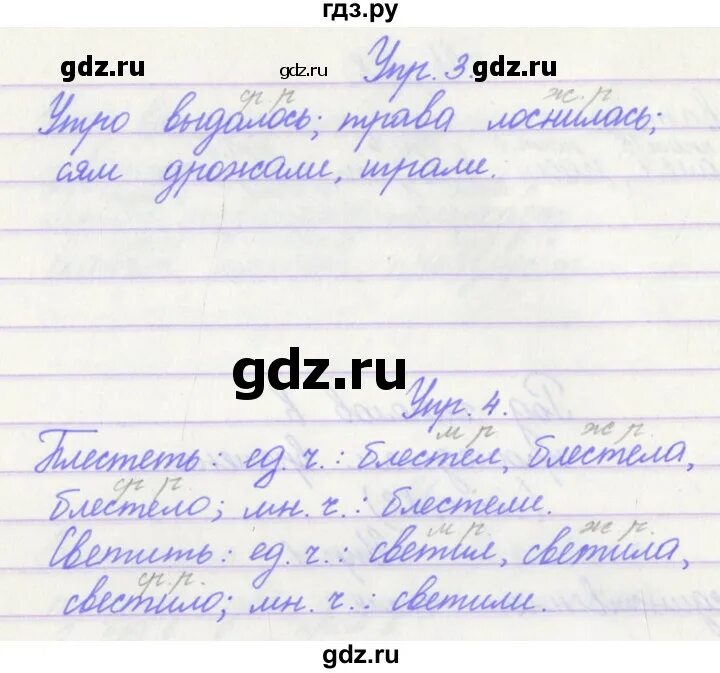 гдз.ру
gdz.ru gdz.ru Упр. 3. gdz.ru
ср. р. ж. р.
Утро выдалось; трава лоснилась;
сям дрожали, играли.
gdz.ru
Упр. 4.
м. р. ж. р.
Блестеть: ед. ч.: блестел, блестела,
ср. р.
блестело; мн. ч.: блестели.
м. р. ж. р.
Светить: ед. ч.: светил, светила,
ср. р.
светило; мн. ч.: светили.
gdz.ru